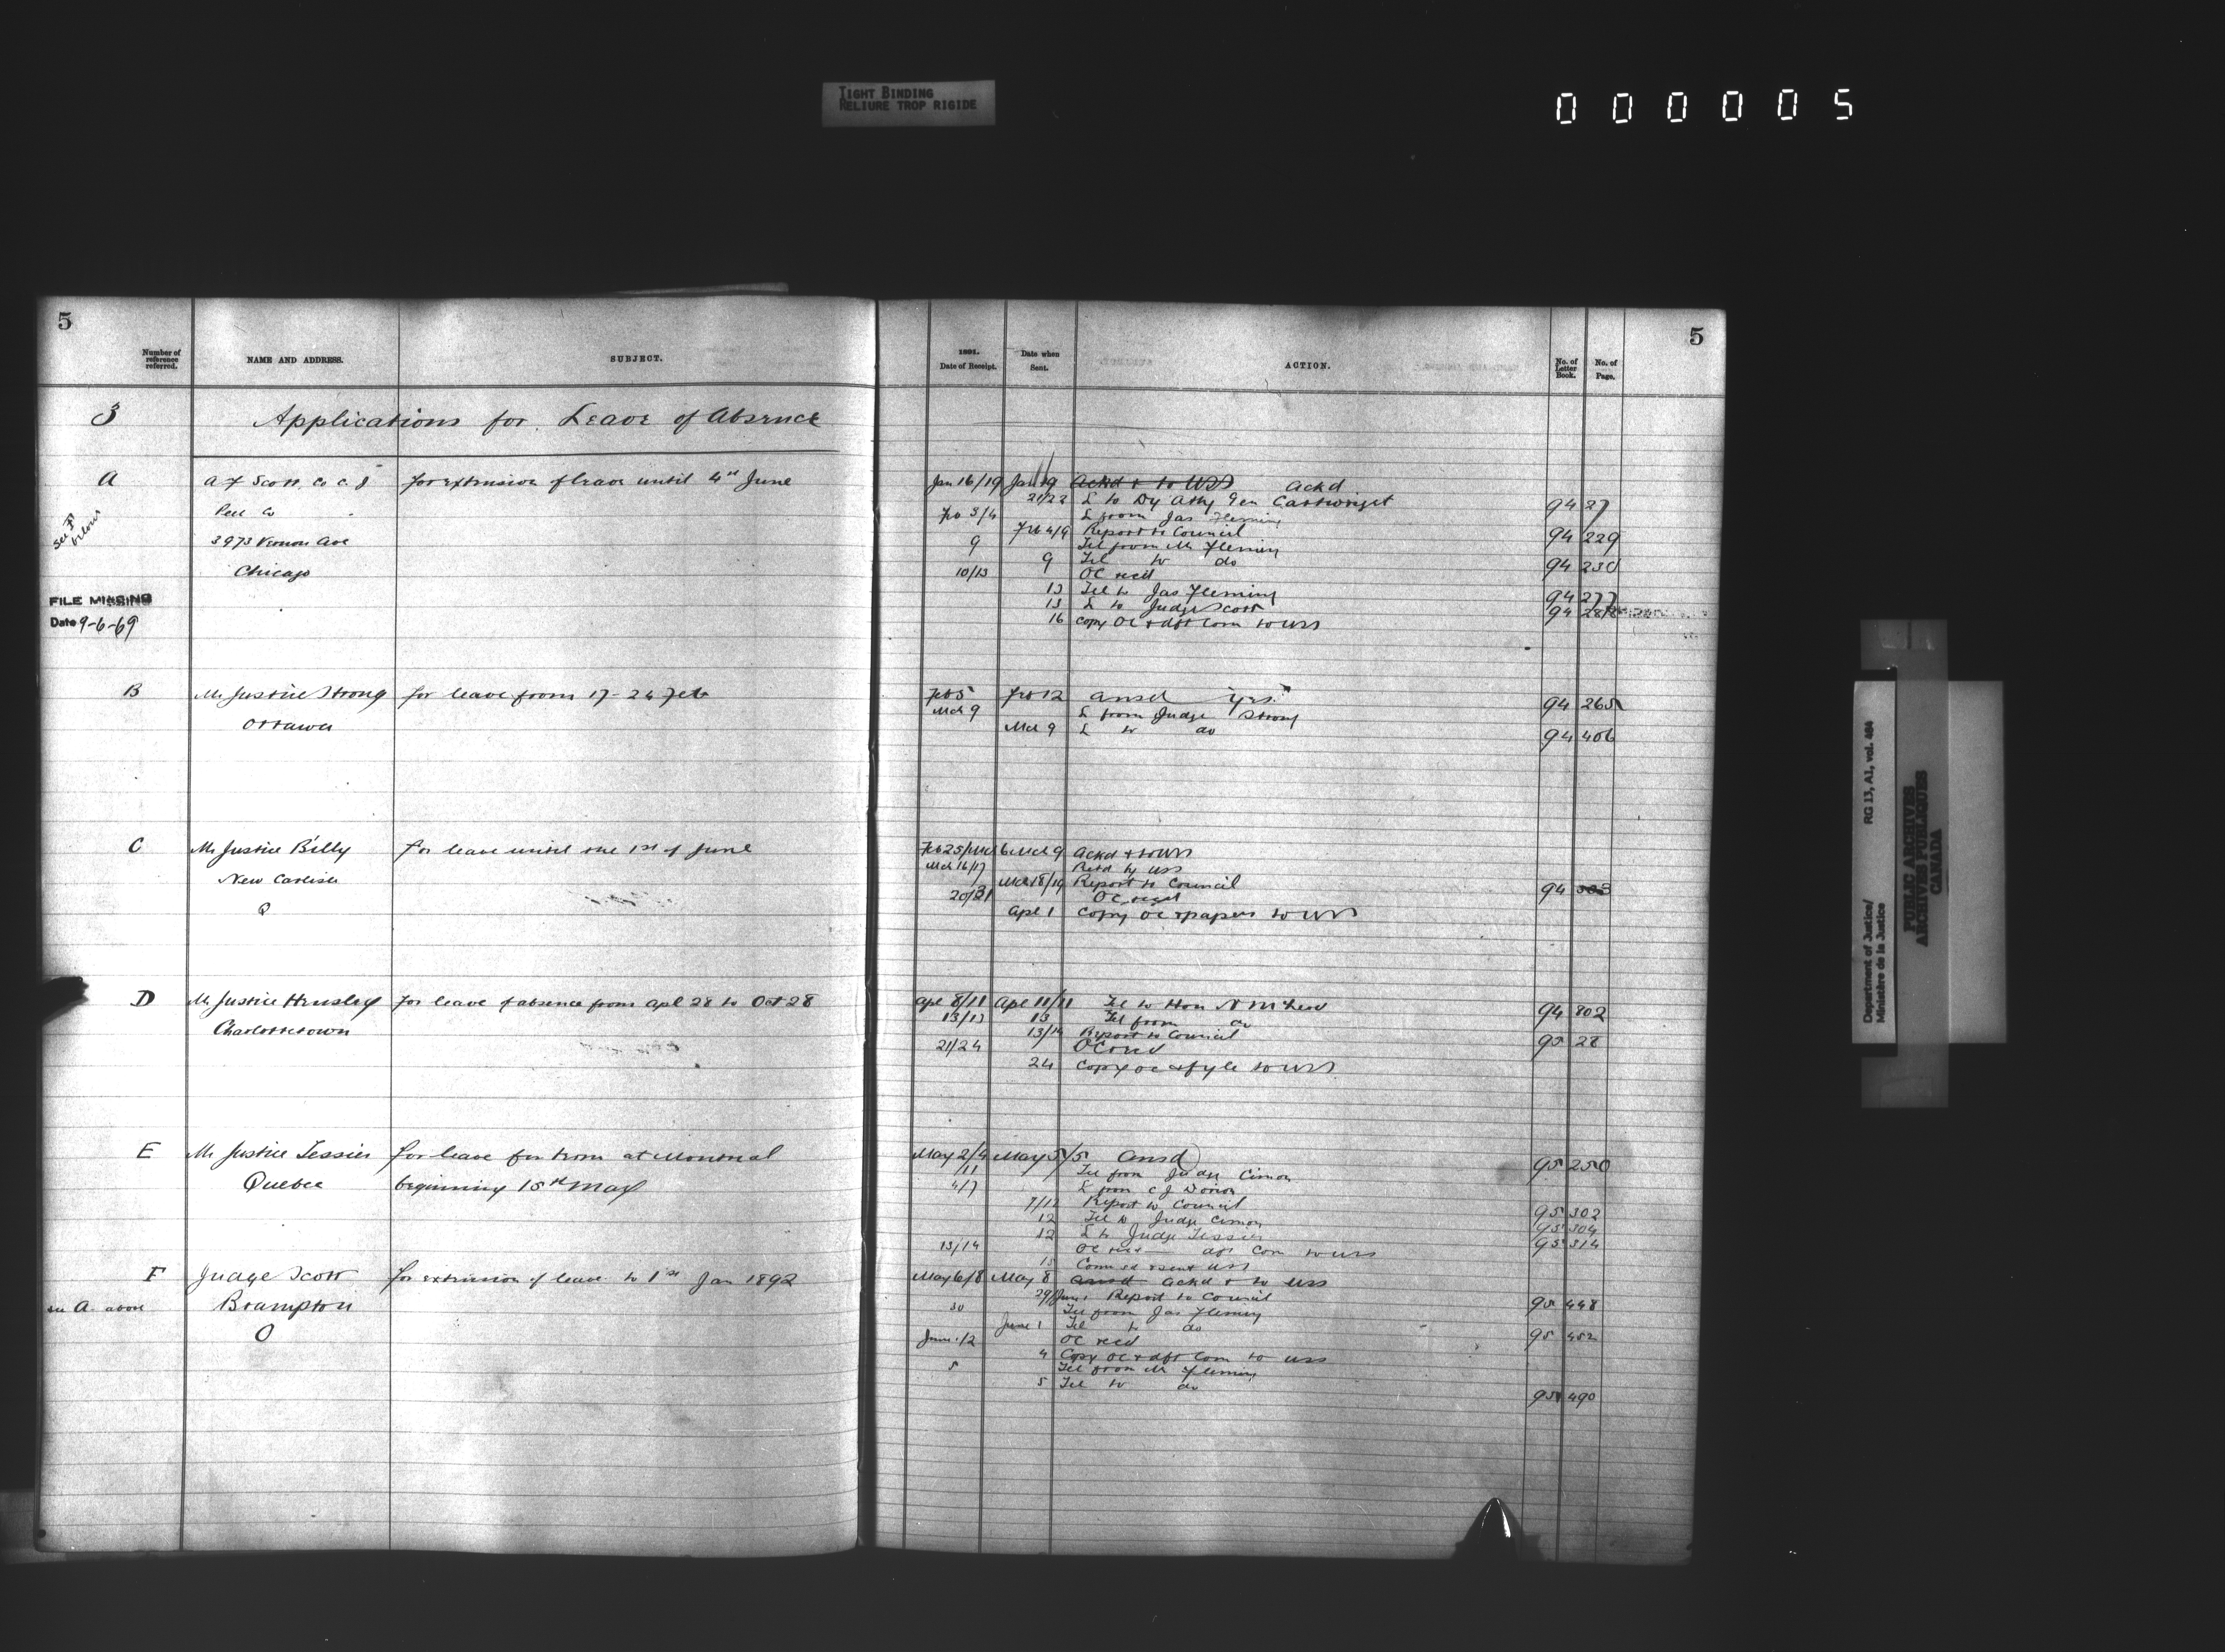 TIGHT BINDING
RELIURE TROP RIGIDE
000005
5
Number of reference referred.
NAME AND ADDRESS.
SUBJECT.
3
Applications for Leave of Absence
A
A F Scott, Co C J
for extension of leave until 1st June
Peel Co
See F below
3973 Vernon Ave
Chicago
FILE MISSING
Date 9-6-69
B
Mr Justice Strong
for leave from 17 - 24 Feb
Ottawa
C
Mr Justice Billy
for leave until the 1st of June
New Carlisle
Q
D
Mr Justice Hensley
for leave of absence from Apl 28 to Oct 28
Charlottetown
E
Mr Justice Tessier
for leave for term at Montreal
Quebec
beginning 15th May
F
Judge Scott
for extension of leave to 1st Jan 1892
see A above
Brampton
O
5
1891.
Date of Receipt.
Date when Sent.
ACTION.
No. of Letter Book.
No. of Page.
Jan 16/19 Jan 19 Ackd & to USS Ackd
21/22 L to Dy Atty Gen Cartwright 94 27
Feb 3/4 L from Jas Fleming
Feb 4/9 Report to Council 94 229
9 Tel from Mr Fleming
9 Tel to do 94 230
10/13 OC recd
13 Tel to Jas Fleming 94 277
13 L to Judge Scott 94
16 Copy OC & dft Com to USS
Feb 5 Feb 12 ansd yes 94 265
Mch 9 L from Judge Strong
Mch 9 L to do 94 406
Feb 25/Mch 6 Mch 9 Ackd & to USS
Mch 16/17 Retd by USS
Mch 18/19 Report to Council 94
20/21 OC recd
Apl 1 Copy OC & papers to USS
Apl 8/11 Apl 11/11 Tel to Hon N McLeod 94 802
13/13 13 Tel from do
13/14 Report to Council 95 28
21/24 OC recd
24 Copy OC & fyle to USS
May 2/4 May 5/5 Ansd 95 250
/11 Tel from Judge Cimon
4/7 L from C J Dorion
7/12 Report to Council 95 302
12 Tel to Judge Cimon 95 304
12 L to Judge Tessier 95 314
13/14 OC recd — dft Com to USS
15 Com sd & sent USS
May 6/8 May 8 ansd ackd & to USS
29/June 1 Report to Council 95 448
30 Tel from Jas Fleming
June 1 Tel to do 95 452
June 1/2 OC recd
4 Copy OC & dft Com to USS
5 Tel from Mr Fleming
5 Tel to do 95 490
Department of Justice/
Ministère de la Justice
RG 13, A1, vol. 464
PUBLIC ARCHIVES
ARCHIVES PUBLIQUES
CANADA